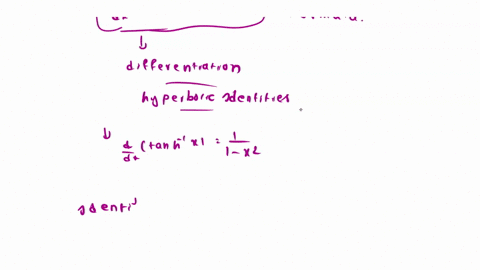 differentiation
hyperbolic identities
d/dt (tanh⁻¹ x) = 1/1-x2
identi